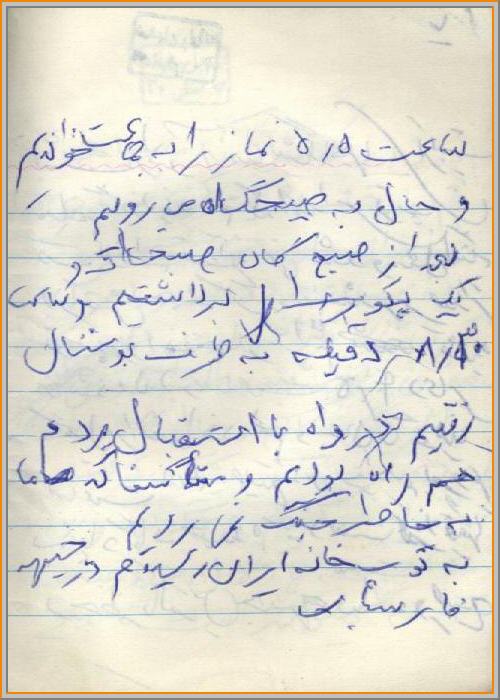 ساعت ۵/۵ نماز را به جماعت خواندیم
و حال به صبحگاه می رویم
بعد از صبح گاه صبحانه و
یک یک را برداشتیم و ساعت
۸/۳۰ دقیقه به طرف بوستان
رفتیم در راه با استقبال مردم
هم راه بودیم و
به خاطر جنگ می رویم
به توپ خانه ایران رسیدیم در جبهه
فارسیات